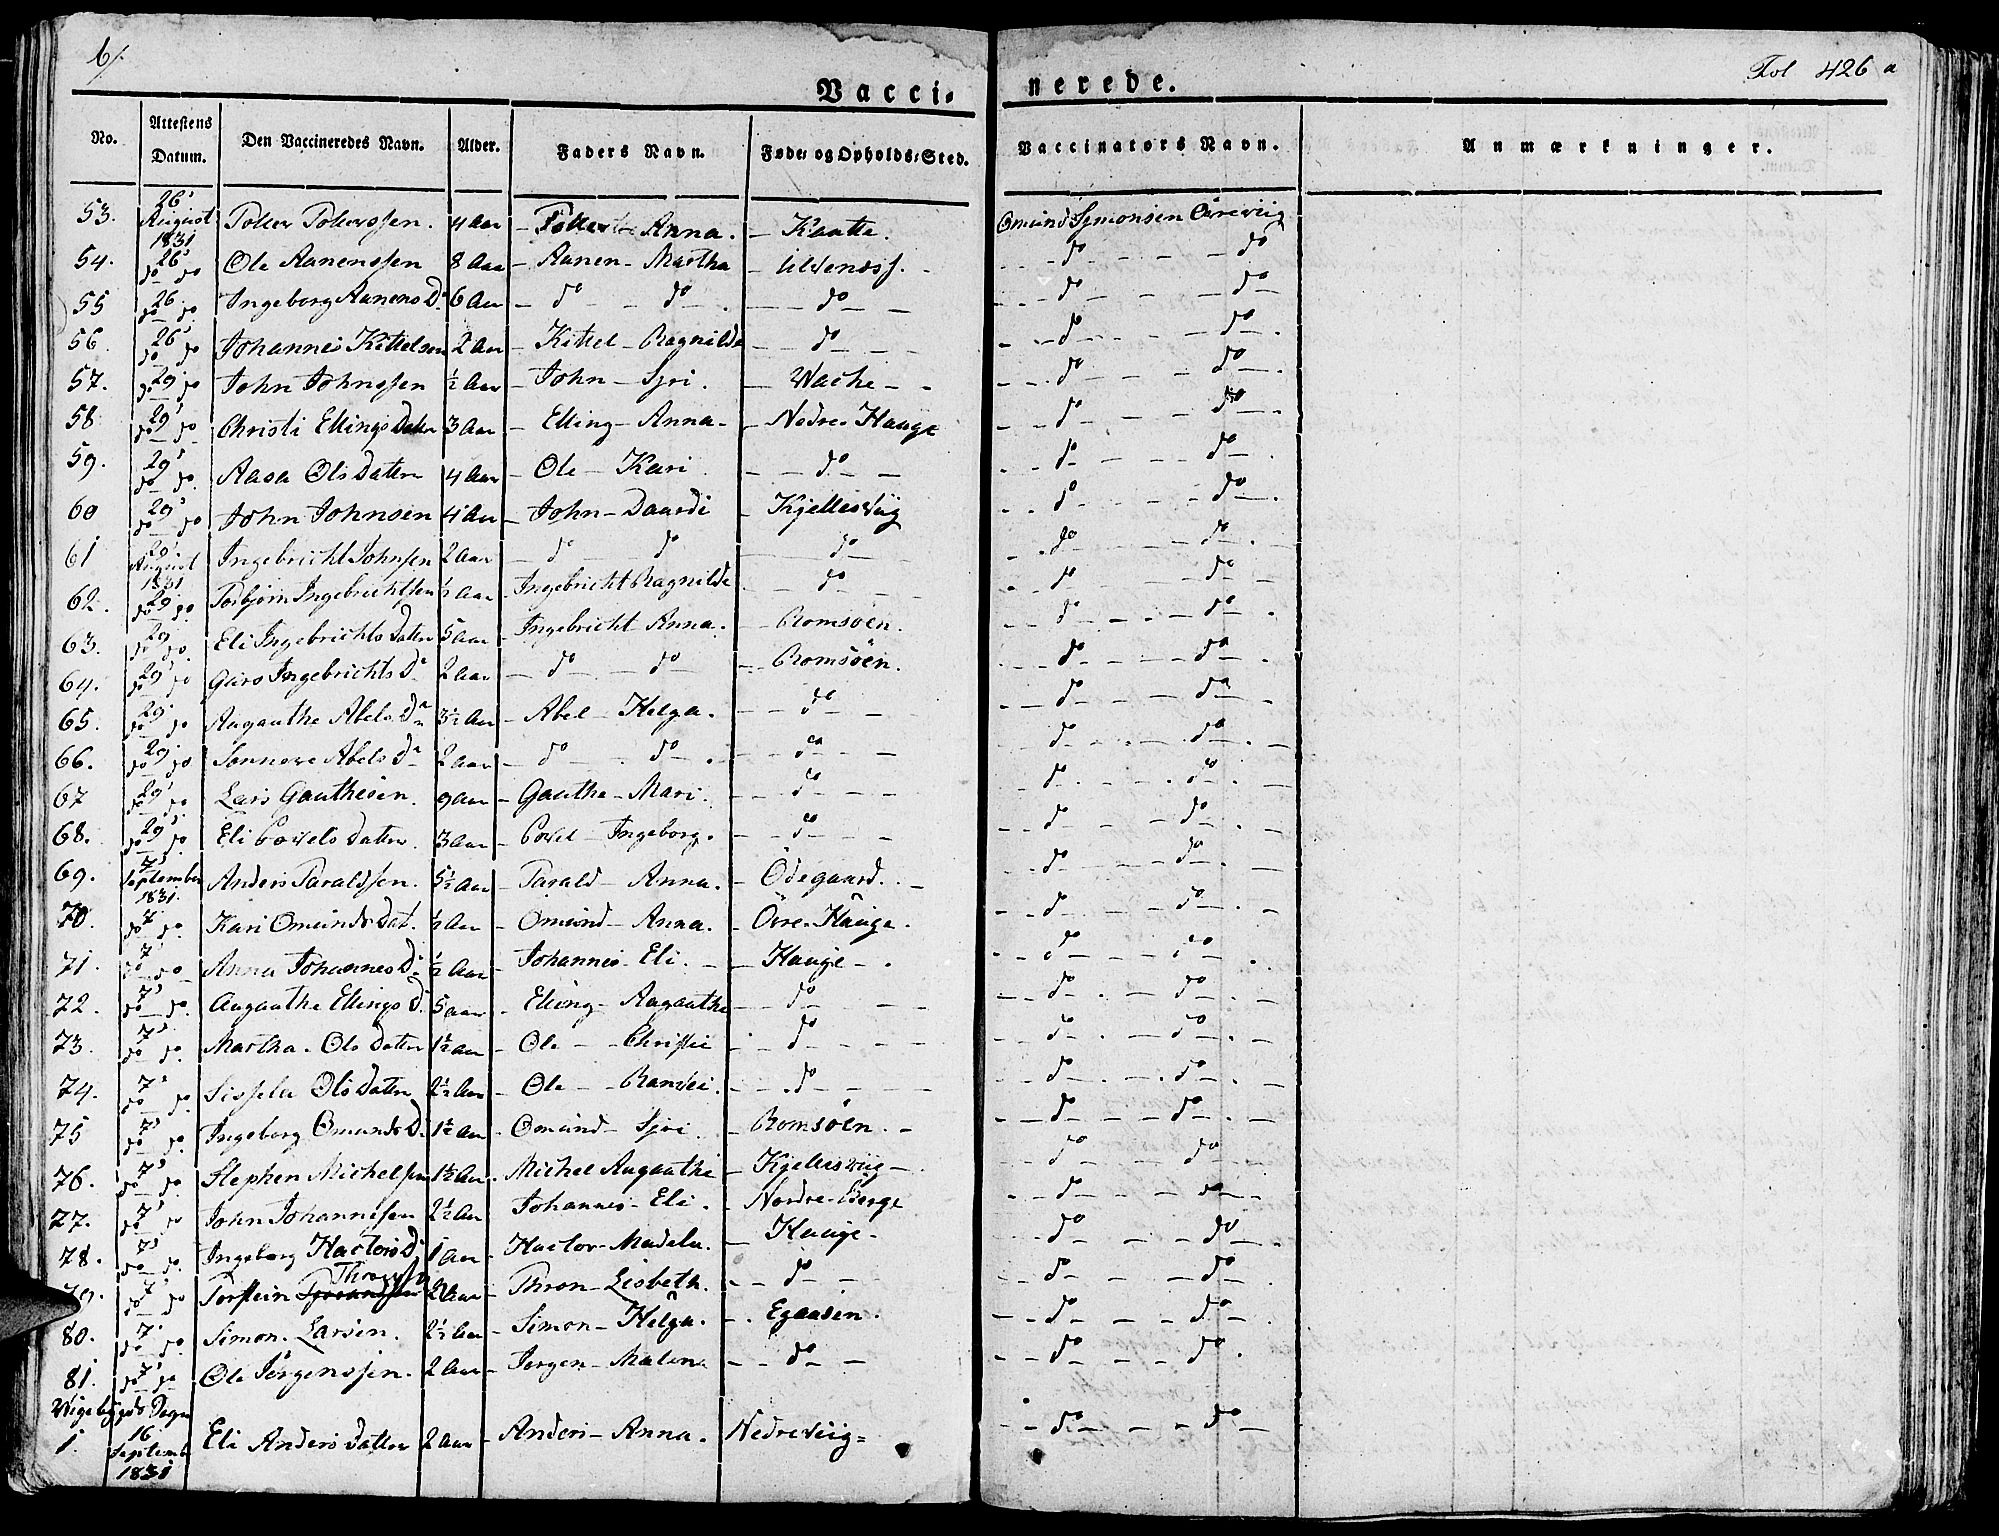 6/.
Fol 426 a
Vacci- nerede.
No. Attestens Datum. Den Vaccineredes Navn. Alder. Faders Navn. Føde- og Opholds-Sted. Vaccinators Navn. Anmærkninger.
53. 26' August 1831 Tollev Tollevssen. 4 Aar - Anna. - Kaatte. Omund Symonsen Öreviig
54. 26' do do Ole Aanenssen 8 Aar - Aanen - Martha - - do - do
55 26' do do Ingeborg Aanens D. 6 Aar - do - do - do - do - do
56. 26' do do Johannes Kittelsen 2 Aar - Kittel - Ragnilde - do - do - do
57. 29' do do John Johnssen ½ Aar - John - Syri. - Wache - do - do
58 29' do do Christi Ellings Datter 3 Aar - Elling - Anna - Nedre Hauge - do - do
59. 29' do do Aasa Ols Datter 4 Aar - Ole - Kari - do - do - do
60 29' do do John Johnsen 4 Aar - John - Daardi - Kjellesviig - do - do
61 29' August 1831 Ingebricht Johnsen 2 Aar - do - do - do - do - do
62. 29' do do Torbjörn Ingebrichtsen ½ Aar - Ingebricht Ragnilde - do - do - do
63. 29' do do Eli Ingebrichts Datter 5 Aar - Ingebricht - Anna. - Romsöen. - do - do
64. 29' do do Guro Ingebrichts D. 2 Aar - do - do - Romsöen. - do - do
65. 29' do do Aagaathe Abels D. 3½ Aar - Abel - Helga. - do - do - do
66. 29' do do Sonneve Abels D. 2 Aar - do - do - do - do - do
67 29' do do Lars Gauthesen. 9 Aar - Gauthe - Mari. - do - do - do
68. 29' do do Eli Povels Datter. 3 Aar - Povel - Ingeborg. - do - do - do
69. 7' September 1831. Anders Taraldsen. 5½ Aar - Tarald - Anna. - Ödegaard. - do - do
70. 7' do do Kari Omunds Dat. ½ Aar - Omund - Anna. - Övre Hauge. - do - do
71. 7' do do Anna Johannes D. ½ Aar - Johannes - Eli. - Hauge - do - do
72. 7' do do Aagaathe Ellings D. 5 Aar - Elling - Aagaathe - do - do - do
73. 7' do do Martha. Ols Datter 1½ Aar - Ole - Christie - do - do - do
74. 7' do do Sisselu Ols Datter 2½ Aar - Ole - Ranvei. - do - do - do
75 7' do do Ingeborg Omunds D. 1½ Aar - Omund - Syri. - Romsöen. - do - do
76. 7' do do Stephen Michelsen 1½ Aar. Michel Aagaathe - Kjellesviig - do - do
77. 7' do do John Johannesen 2½ Aar Johannes - Eli. - Nordre Berge - do - do
78. 7' do do Ingeborg Hactors D. 1 Aar - Hactor - Madela. - Hauge - do - do
79. 7' do do Torstein Thronsen 2 Aar - Thron - Lisbeth. - do - do - do
80. 7' do do Simon. Larsen. 2½ Aar - Simon - Helga. - Egaasen. - do - do
81. 7' do do Ole Jörgenssen. 2 Aar - Jörgen - Malena - do - do - do
Wigebygds Sogn
1. 16 September 1831 Eli Anders Datter 2 Aar - Anders - Anna. Nedreviig = - do - do